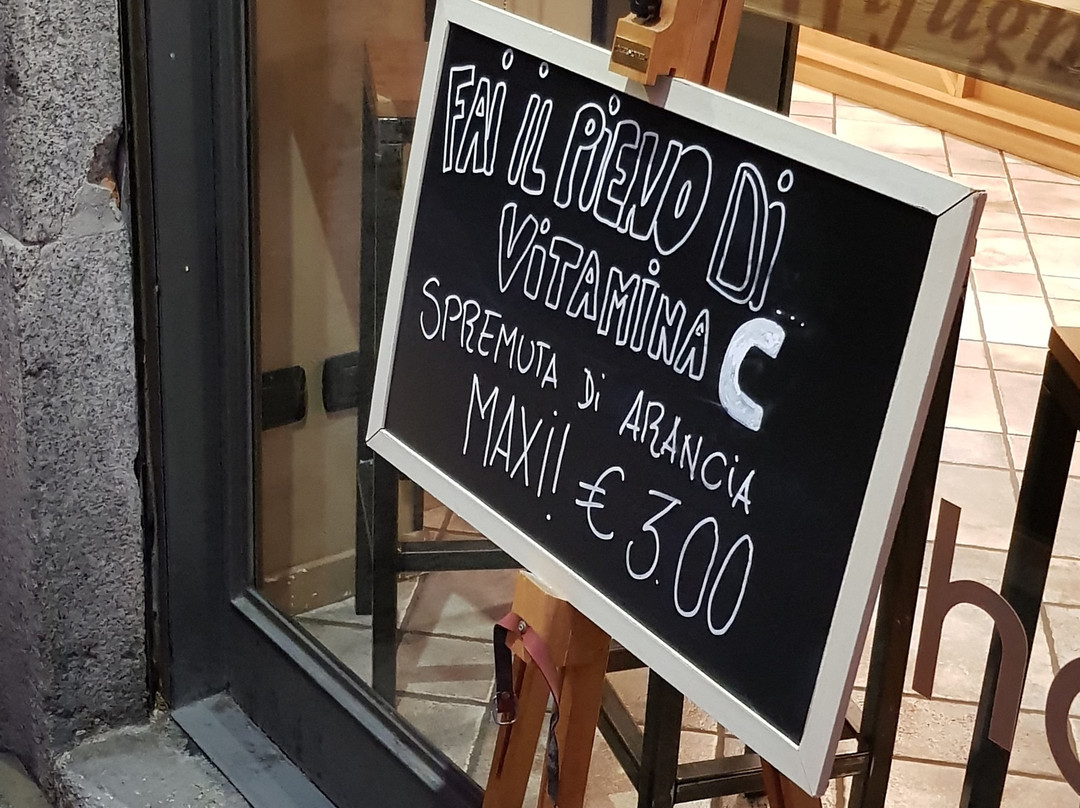 FAI IL PIENO DI...
VITAMINA C
SPREMUTA DI ARANCIA
MAXI! € 3.00
h